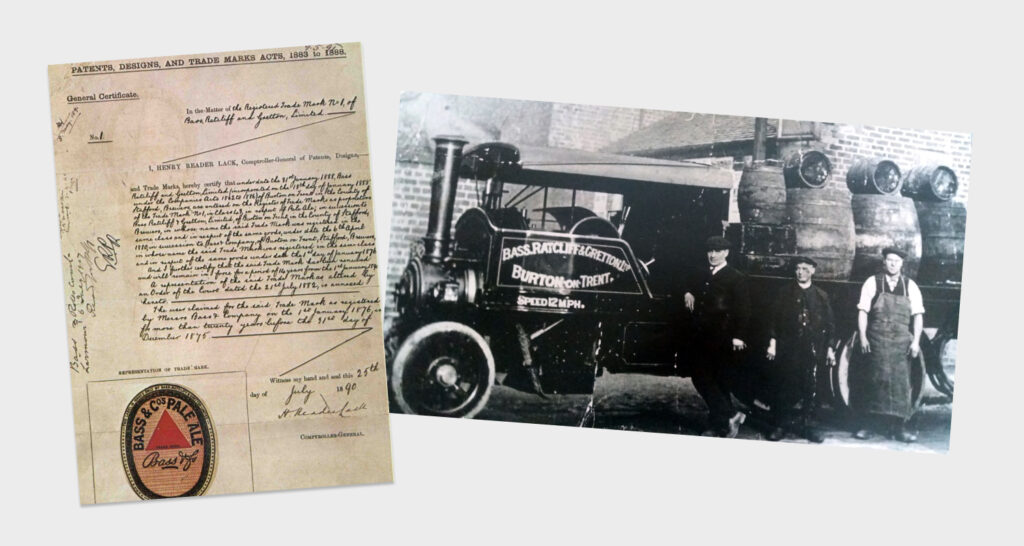 PATENTS, DESIGNS, AND TRADE MARKS ACTS, 1883 to 1888.
General Certificate.
In the Matter of the Registered Trade Mark No 1, of
Bass, Ratcliff and Gretton, Limited
No. 1.
I, HENRY READER LACK, Comptroller-General of Patents, Designs,
and Trade Marks, hereby certify that under date the 31st January 1888, Bass
Ratcliff and Gretton Limited (incorporated on the day of January 1888
under the Companies Acts 1862 to 1886) of Burton on Trent in the County of
Stafford, Brewers, are entered on the Register of Trade Marks as proprietors
of the Trade Mark No 1, in class 43 in respect of Pale Ale, in succession to
Bass Ratcliff & Gretton, Limited, of Burton on Trent in the County of Stafford,
Brewers, in whose name the said Trade Mark was registered in the
same class and in respect of the same goods, under date the April
1880, in succession to Bass & Company of Burton on Trent, Stafford, Brewers,
in whose name the said Trade Mark was registered in the same class
and in respect of the same goods under date the 1st day of January 1876
And I further certify that the said Trade Mark
and will remain in force for a period of 14 years from the 1st January
A representation of the said Trade Mark as altered by
an Order of the Court dated the 21st July 1882, is annexed
hereto.
The user claimed for the said Trade Mark as registered
by Messrs Bass & Company on the 1st January 1876, is
for more than twenty years before the 31st day of
December 1875
Witness my hand and seal this 25th
day of July 1890
H Reader Lack
COMPTROLLER-GENERAL.
REPRESENTATION OF TRADE MARK.
BASS & Co's PALE ALE
TRADE MARK
Bass & Co
BASS, RATCLIFF & GRETTON LTD
BURTON-ON-TRENT.
SPEED 12 M.P.H.